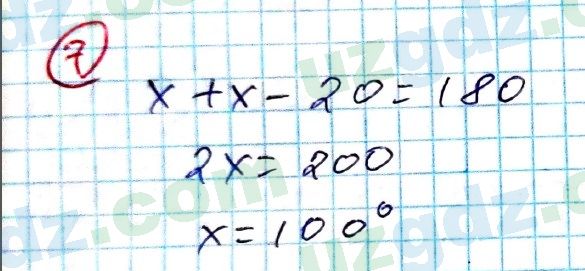 7
x + x - 20 = 180
2x = 200
x = 100°
uzgdz.com